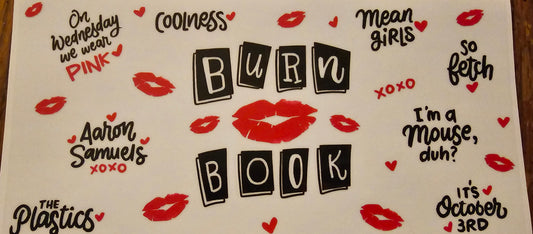 On
Wednesday
we wear
PINK
COOLNESS
Mean
GiRLS
SO
fetch
BURN
BOOK
XOXO
Aaron
Samuels
XOXO
I'm a
Mouse,
duh?
THE
Plastics
IT'S
October
3RD